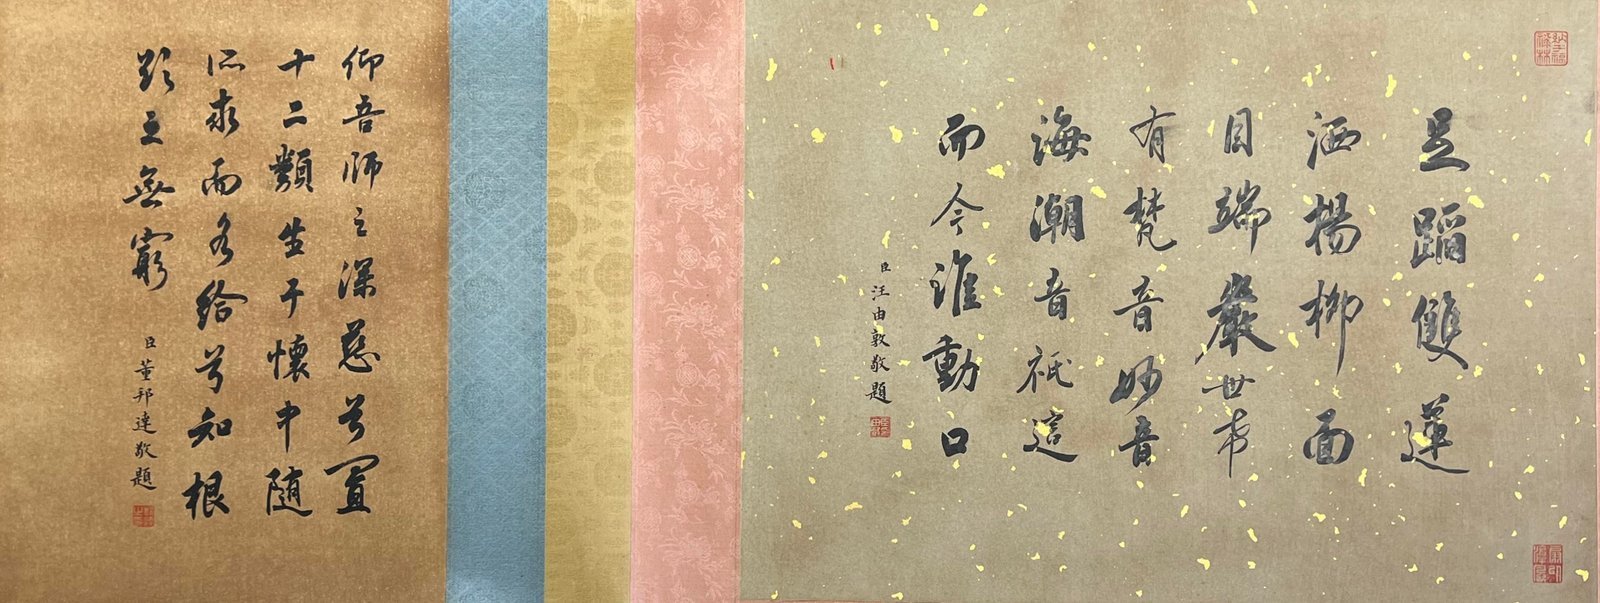 足蹈雙蓮
洒楊柳面
目端嚴世希
有梵音妙音
海潮音祇這
而今誰動口
臣汪由敦敬題
仰吾師之深慈兮置
十二類生于懷中随
所求而各给兮知根
之無窮
臣董邦達敬題